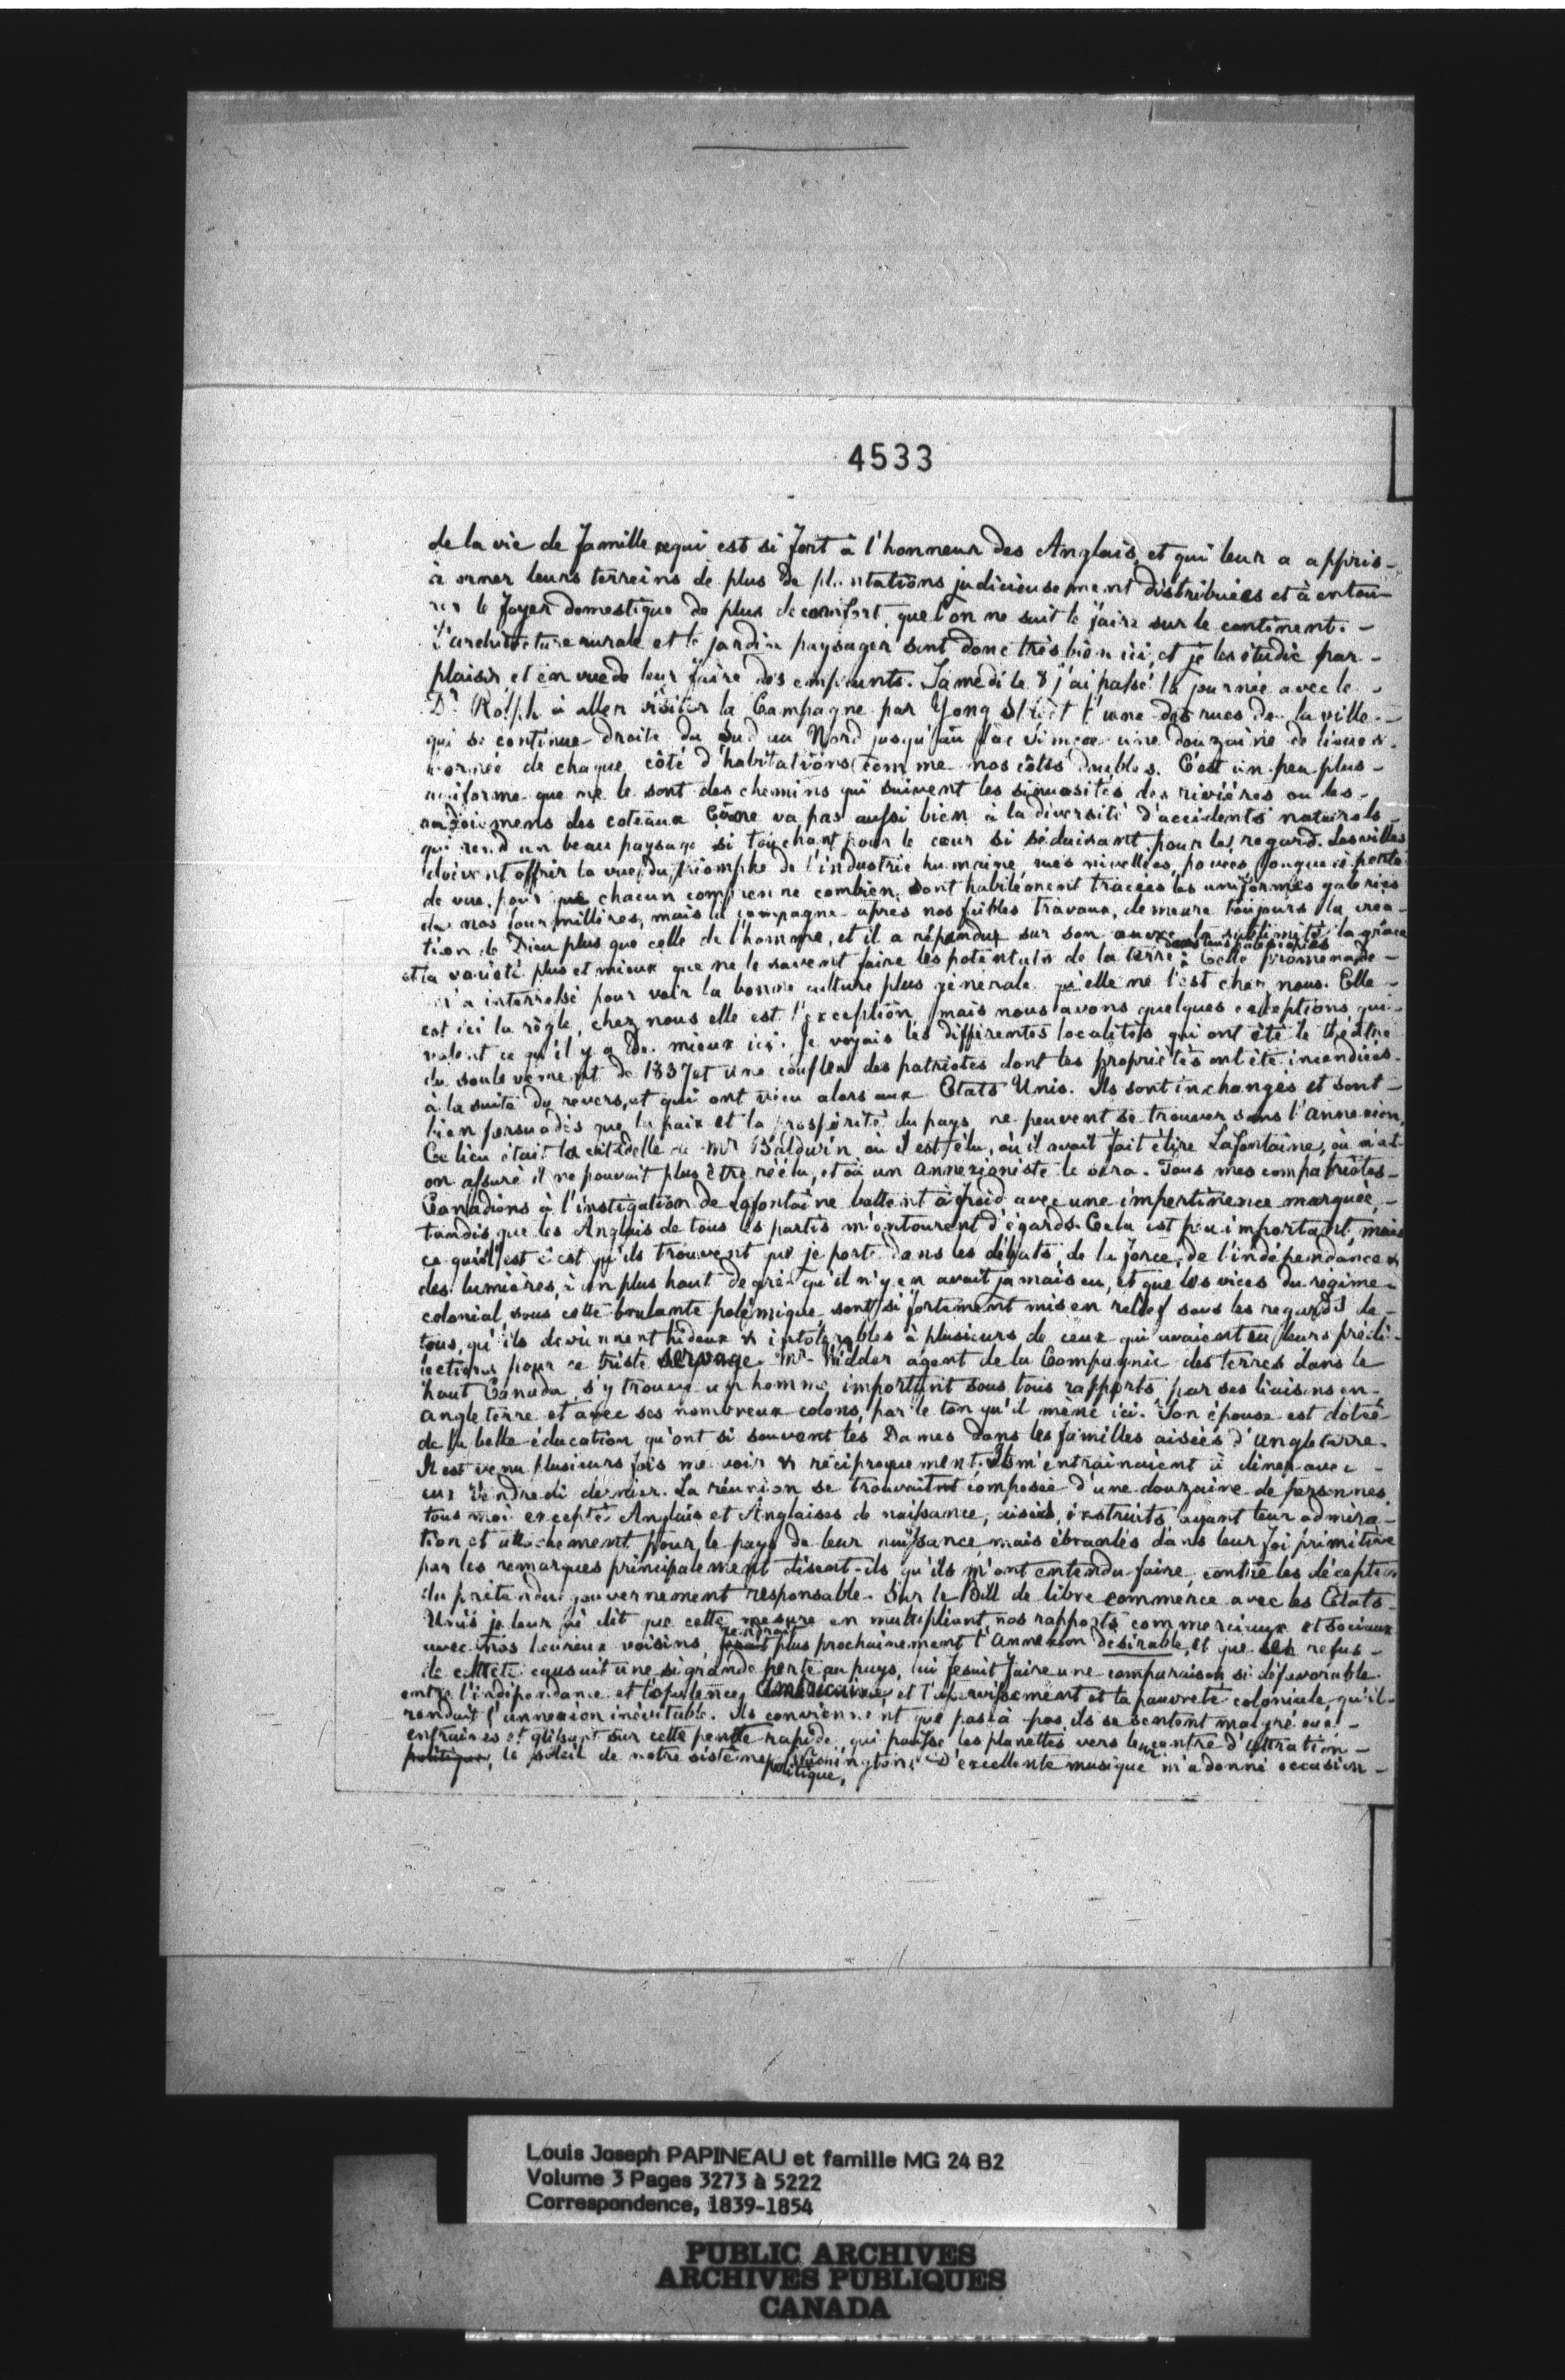 4533
de la vie de famille qui est si fort à l'honneur des Anglais et qui leur a appris
à orner leurs terreins de plus de plantations judicieusement distribuées et à entou-
rer le foyer domestique de plus de comfort, que l'on ne sait le faire sur le continent.
L'architecture rurale et le jardin paysager sont donc très bien ici, et je les étudie par
plaisir et en vue de leur faire des emprunts. Samedi le 8 j'ai passé la journée avec le
Dr Rolph à aller visiter la Campagne par Yong Street l'une des rues de la ville
qui se continue droite du Sud au Nord jusqu'au lac Simcoe une douzaine de lieues
bornée de chaque côté d'habitations comme nos côtes doubles. C'est un peu plus
uniforme que ne le sont des chemins qui suivent les sinuosités des rivières ou les
des coteaux Ca ne va pas aussi bien à la diversité d'accidents naturels
qui rend un beau paysage si touchant pour le cœur si séduisant pour les regard. Les villes
doivent offrir la vue du triomphe de l'industrie humaine, rues nivellées, pavées, longue
de vue, pour que chacun comprenne combien sont habilement tracées les uniformes galeries
de nos fourmillires, mais la campagne après nos faibles travaux, demeure toujours la créa-
tion de Dieu plus que celle de l'homme, et il a répandu sur son œuvre la sublimité la grâce
et la variété plus et mieux que ne le savent faire les potentats de la terre. Cette promenade
m'a interressé pour voir la bonne culture plus générale qu'elle ne l'est chez nous. Elle
est ici la règle, chez nous elle est l'exception, mais nous avons quelques exceptions qui
valent ce qu'il y a de mieux ici. Je voyais les différentes localités qui ont été le théâtre
du soulevement de 1837 et une couple des patriotes dont les propriétés ont été incendiées
à la suite du revers, et qui ont vécu alors aux Etats Unis. Ils sont inchangés et sont
bien persuadés que la paix et la prospérité du pays ne peuvent se trouver sans l'annexion.
Ce lieu était la citadelle de Mr Baldwin où il est élu, où il avait fait élire Lafontaine, où m'at-
on assuré il ne pouvait plus être réélu, et où un annexioniste le sera. Tous mes compatriotes
Canadiens à l'instigation de Lafontaine battent à froid avec une impertinence marquée,
tandis que les Anglais de tous les partis m'entourent d'égards. Cela est peu important, mais
ce qui l'est c'est qu'ils trouvent que je porte dans les débats, de la force, de l'indépendance &
des lumières, à un plus haut degré qu'il n'y en avait jamais eu, et que les vices du regime
colonial, sous cette brulante polémique, sont si fortement mis en relief sous les regards de
tous, qu'ils deviennent hideux & intolerables à plusieurs de ceux qui avaient eu leurs prédi-
lections pour ce triste servage. Mr Widder agent de la Compagnie des terres dans le
haut Canada, s'y trouve un homme important sous tous rapports par ses liaisons en
angleterre et avec ses nombreux colons, par le ton qu'il mène ici. Son épouse est dotée
de la belle éducation qu'ont si souvent les Dames dans les familles aisées d'angleterre.
Il est venu plusieurs fois me voir & réciproquement. Ils m'entrainaient à diner avec
eux Vendredi dernier. La réunion se trouvait composée d'une douzaine de personnes,
tous moi excepté Anglais et Anglaises de naissance, aisés, instruits ayant leur admira-
tion et attachement pour le pays de leur naissance, mais ébranlés dans leur foi primitive
par les remarques principalement disent-ils qu'ils m'ont entendu faire, contre les déception
du prétendu gouvernement responsable. Sur le Bill de libre commerce avec les Etats
Unis je leur ai dit que cette mesure en multipliant nos rapports commerciaux et sociaux
avec nos heureux voisins, rendrait plus prochainement l'Annexion desirable, et que ses refus
causait une si grande perte au pays, lui fesait faire une comparaison si défavorable
entre l'indépendance et l'opulence Américaine et l'asservissement et la pauvreté coloniale, qu'il
rendait l'annexion inévitable. Ils conviennent que pas à pas, ils se sentent malgré eux
entrainés et glissant sur cette pente rapide, qui pousse les planettes vers leur centre d'attration
politique, le soleil de notre sistême politique, Washington. D'excellente musique m'a donné occasion
Louis Joseph PAPINEAU et famille MG 24 B2
Volume 3 Pages 3273 à 5222
Correspondence, 1839-1854
PUBLIC ARCHIVES
ARCHIVES PUBLIQUES
CANADA